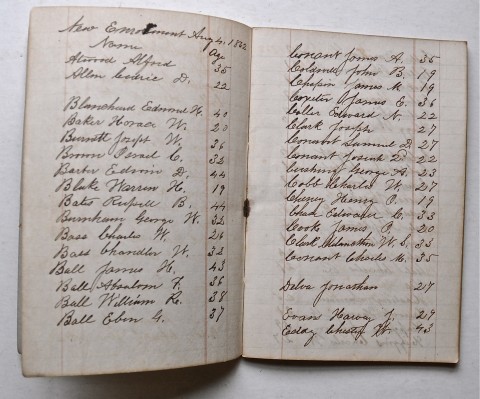 New Enrollment Aug 4, 1862
Name Age
Atwood Alfred 35
Allen D. 22
Blanchard Edmund H. 40
Baker Horace W.
Burnett Joseph W. 36
Brown C. 32
Barber Edwin D. 44
Blake Warren H. 19
Bates Russell B. 44
Burnham George W. 32
Bass Charles W. 26
Bass Chandler W. 32
Ball James H. 43
Ball Absalom F. 36
Ball William Re. 38
Ball Eben G. 37
Conant James A. 35
Coldwell John B. 19
Chapin James M. 19
James C. 36
Coller Edward N. 22
Clark Joseph 27
Conant Samuel D. 27
Conant Josiah D. 22
Cushing George A. 23
Cobb Charles W. 27
Cheney Henry P. 19
Edwater C. 33
Cook James P. 20
Clark Melancthon W. S. 32
Conant Charles M. 35
Delva Jonathan 27
Evan Harvey J. 29
Eddy Chester W. 43